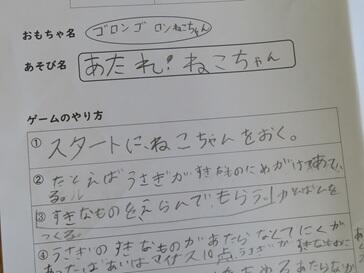 おもちゃ名 ゴロンゴ ロンねこちゃん
あそび名 あたれ!ねこちゃん
ゲームのやり方
① スタートに、ねこちゃんをおく。
② たとえばうさぎがすきなものにめがけてあて
る。
③ すきなものをえらんで、もらう
つくる。
④ うさぎのすきなものがあたらなくてにくが
あったばあいはマイナス10点